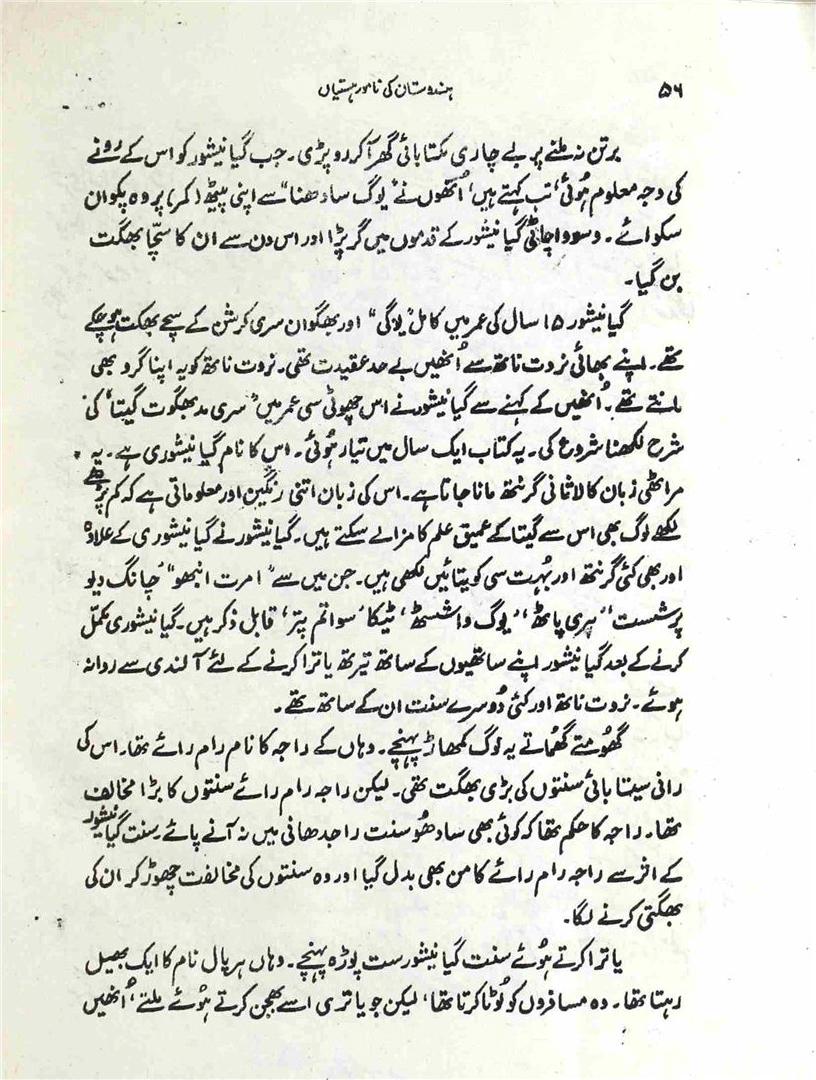 ۵۶
ہندوستان کی نامور ہستیاں
برتن نہ ملنے پر بے چاری مکتا بائی گھر آکر رو پڑی۔ جب گیانیشور کو اس کے رونے
کی وجہ معلوم ہوئی، تب کہتے ہیں، اُنھوں نے "یوگ سادھنا" سے اپنی پیٹھ (کمر) پر وہ پکوان
سکوائے۔ وسووا چاٹی گیانیشور کے قدموں میں گر پڑا اور اس دن سے ان کا سچّا بھگت
بن گیا۔
گیانیشور ۱۵ سال کی عمر میں کامل "یوگی" اور بھگوان سری کرشن کے سچے بھگت ہو چکے
تھے۔ اپنے بھائی نروت ناتھ سے اُنھیں بے حد عقیدت تھی۔ نروت ناتھ کو یہ اپنا گرو بھی
مانتے تھے۔ اُنھیں کے کہنے سے گیانیشور نے اس چھوٹی سی عمر میں "سری مد بھگوت گیتا" کی
شرح لکھنا شروع کی۔ یہ کتاب ایک سال میں تیار ہوئی۔ اس کا نام گیانیشوری ہے۔ یہ
مراٹھی زبان کا لاثانی گرنتھ مانا جاتا ہے۔ اس کی زبان اتنی رنگین اور معلوماتی ہے کہ کم پڑھے
لکھے لوگ بھی اس سے گیتا کے عمیق علم کا مزا لے سکتے ہیں۔ گیانیشور نے گیانیشوری کے علاوہ
اور بھی کئی گرنتھ اور بُہت سی کویتائیں لکھی ہیں۔ جن میں سے "امرت انبھو" "چانگ دیو
پرشست" "ہری پاٹھ" "یوگ واشسٹھ" ٹیکا "سواتم پتر" قابل ذکر ہیں۔ گیانیشوری مکمّل
کرنے کے بعد گیانیشور اپنے ساتھیوں کے ساتھ تیرتھ یاترا کرنے کے لئے آلندی سے روانہ
ہوئے۔ نروت ناتھ اور کئی دُوسرے سنت ان کے ساتھ تھے۔
گھُومتے گھُماتے یہ لوگ کمھاڑ پہنچے۔ وہاں کے راجہ کا نام رام رائے تھا۔ اس کی
رانی سیتا بائی سنتوں کی بڑی بھگت تھی۔ لیکن راجہ رام رائے سنتوں کا بڑا مخالف
تھا۔ راجہ کا حکم تھا کہ کوئی بھی سادھُو سنت راجدھانی میں نہ آنے پائے۔ سنت گیانیشور
کے اثر سے راجہ رام رائے کا من بھی بدل گیا اور وہ سنتوں کی مخالفت چھوڑ کر ان کی
بھگتی کرنے لگا۔
یاترا کرتے ہُوئے سنت گیانیشور ست پوڑہ پہنچے۔ وہاں ہرپال نام کا ایک بھیل
رہتا تھا۔ وہ مسافروں کو لُوٹا کرتا تھا، لیکن جو یاتری اسے بھجن کرتے ہُوئے ملتے، اُنھیں